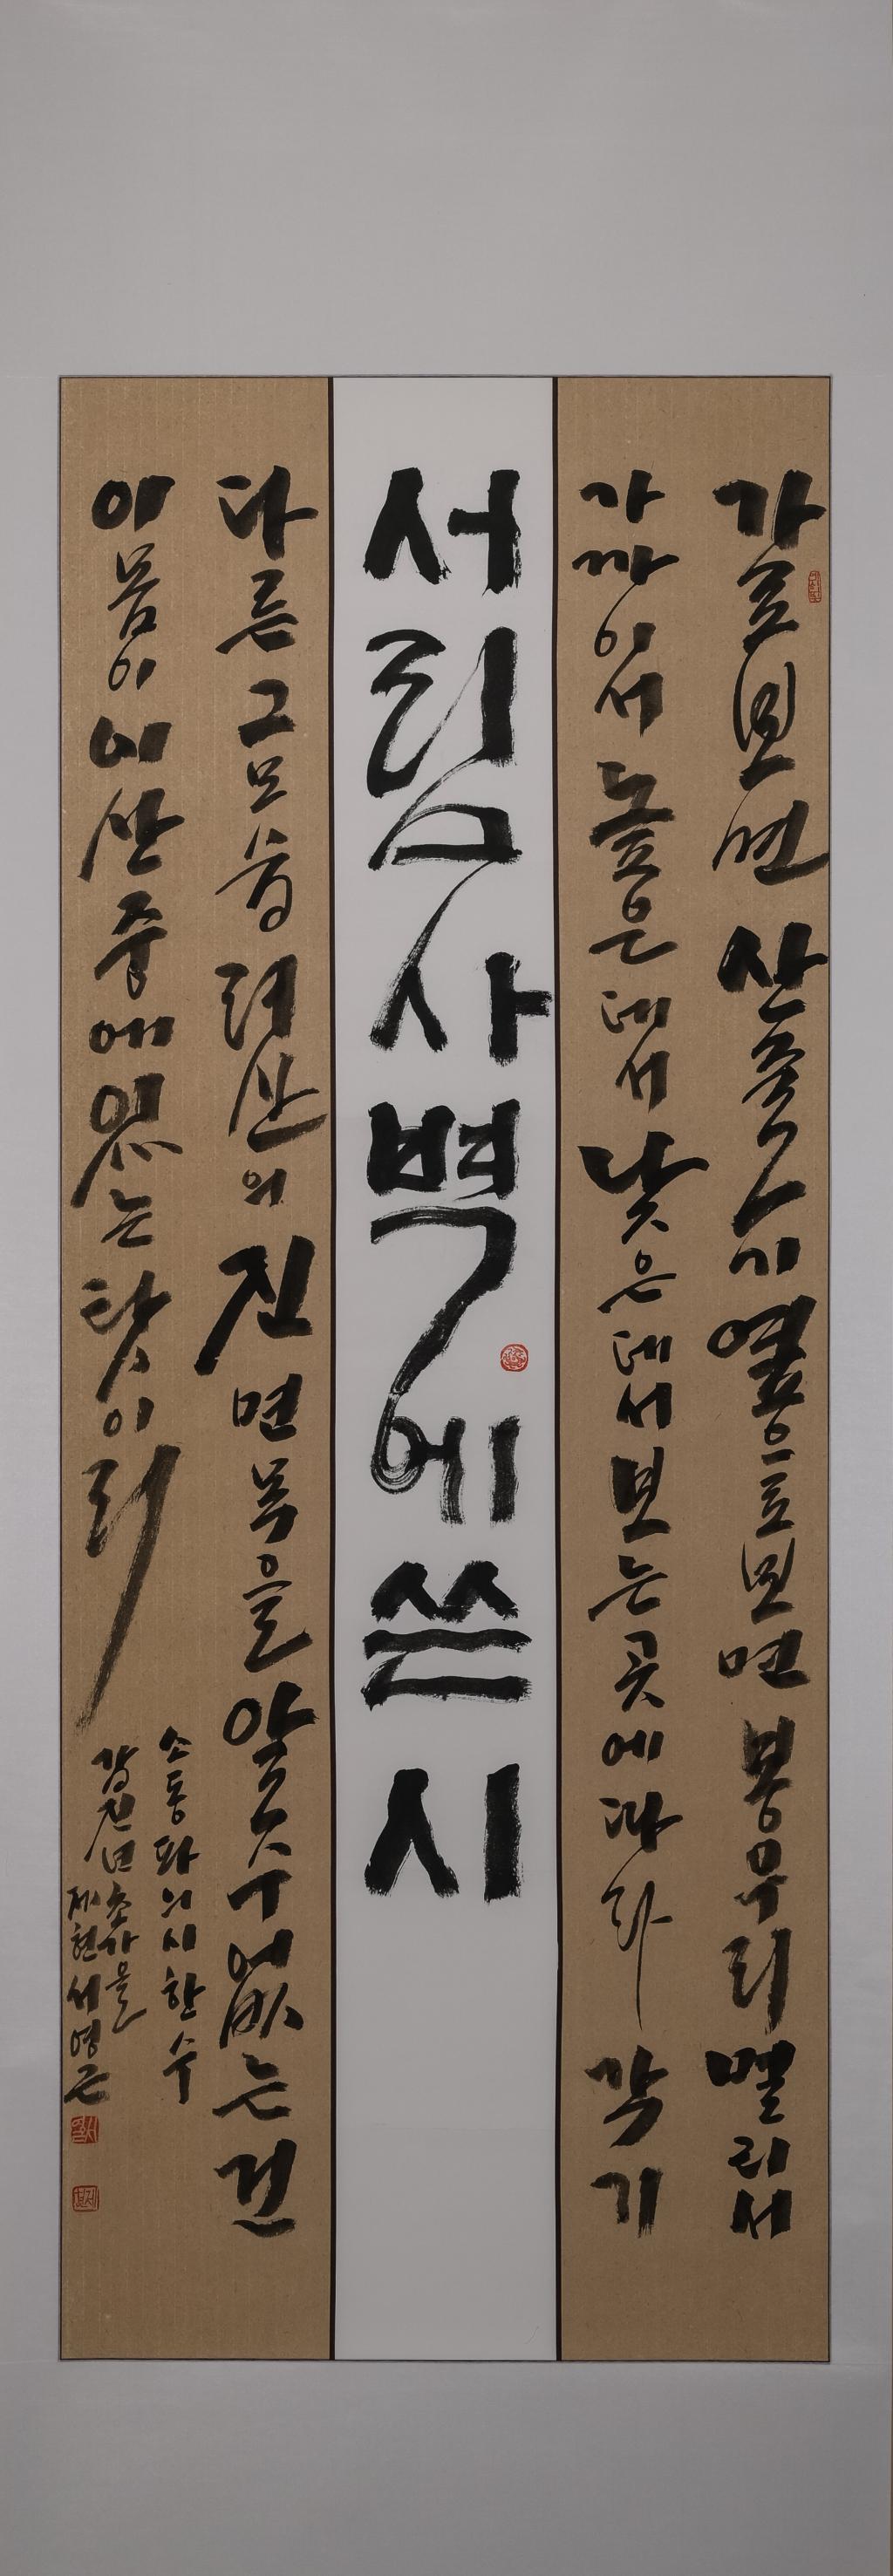 가로보면 산줄기 옆으로 보면 봉우리 멀리서
가까이서 높은 데서 낮은 데서 보는 곳에 따라 각기
서림사 벽에 쓴 시
다른 그 모습 려산의 진면목을 알 수 없는 건
이 몸이 이 산중에 있는 탓이리
소동파의 시 한 수
갑진년 초가을
재현 서영근